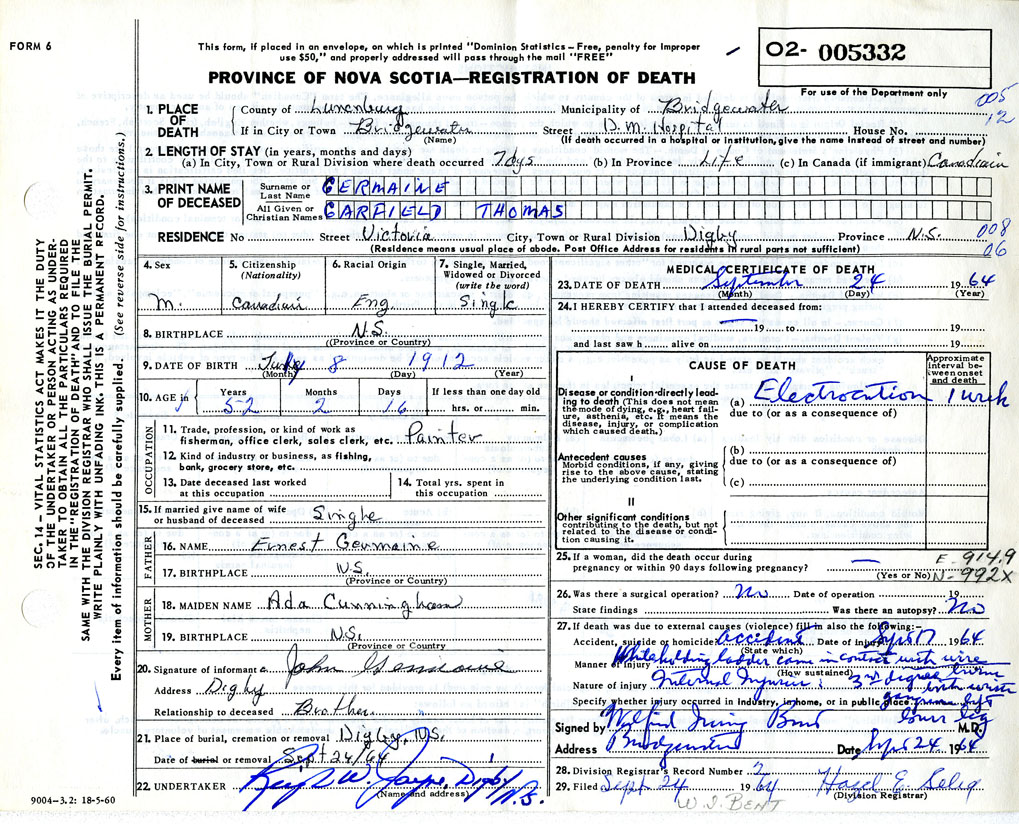 FORM 6
This form, if placed in an envelope, on which is printed "Dominion Statistics – Free, penalty for improper
use $50," and properly addressed will pass through the mail "FREE"
PROVINCE OF NOVA SCOTIA—REGISTRATION OF DEATH
02- 005332
For use of the Department only
005
12
1. PLACE OF DEATH
County of Lunenburg Municipality of Bridgewater
If in City or Town Bridgewater Street D.M. Hospital House No.
(Name) (If death occurred in a hospital or institution, give the name instead of street and number)
2. LENGTH OF STAY (in years, months and days)
(a) In City, Town or Rural Division where death occurred 7 dys (b) In Province Life (c) In Canada (if immigrant) Canadian
3. PRINT NAME OF DECEASED
Surname or Last Name GERMAINE
All Given or Christian Names GARFIELD THOMAS
RESIDENCE No Street Victoria City, Town or Rural Division Digby Province N.S.
(Residence means usual place of abode. Post Office Address for residents in rural parts not sufficient)
008
06
4. Sex M.
5. Citizenship (Nationality) Canadian
6. Racial Origin Eng.
7. Single, Married, Widowed or Divorced (write the word) Single
8. BIRTHPLACE N.S.
(Province or Country)
9. DATE OF BIRTH July 8 1912
(Month) (Day) (Year)
10. AGE in Years 52 Months 2 Days 16 If less than one day old hrs. or min.
OCCUPATION
11. Trade, profession, or kind of work as
fisherman, office clerk, sales clerk, etc. Painter
12. Kind of industry or business, as fishing,
bank, grocery store, etc.
13. Date deceased last worked
at this occupation
14. Total yrs. spent in
this occupation
15. If married give name of wife
or husband of deceased Single
FATHER
16. NAME Ernest Germaine
17. BIRTHPLACE N.S.
(Province or Country)
MOTHER
18. MAIDEN NAME Ada Cunningham
19. BIRTHPLACE N.S.
(Province or Country
20. Signature of informant John Germaine
Address Digby
Relationship to deceased Brother
21. Place of burial, cremation or removal Digby, N.S.
Date of burial or removal Sept 24/64
22. UNDERTAKER W. Jayne, Digby N.S.
(Name and address)
9004-3.2: 18-5-60
MEDICAL CERTIFICATE OF DEATH
23. DATE OF DEATH September 24 1964
(Month) (Day) (Year)
24. I HEREBY CERTIFY that I attended deceased from:
19 to 19
and last saw h alive on 19
CAUSE OF DEATH
Approximate interval between onset and death
I
Disease or condition directly leading to death (This does not mean the mode of dying, e.g., heart failure, asthenia, etc. It means the disease, injury, or complication which caused death.)
(a) Electrocution 1 week
due to (or as a consequence of)
Antecedent causes
Morbid conditions, if any, giving rise to the above cause, stating the underlying condition last.
(b)
due to (or as a consequence of)
(c)
II
Other significant conditions
contributing to the death, but not related to the disease or condition causing it.
25. If a woman, did the death occur during
pregnancy or within 90 days following pregnancy? —
(Yes or No)
E-914.9
N-992X
26. Was there a surgical operation? No Date of operation 19
State findings Was there an autopsy? No
27. If death was due to external causes (violence) fill in also the following:—
Accident, suicide or homicide? accident Date of injury Sept 17 1964
(State which)
Manner of injury While holding ladder came in contact with wire
(How sustained)
Nature of injury Internal Injuries: 3rd degree burns
both wrists
Specify whether injury occurred in industry, in home, or in public place. gangrene left
lower leg
Signed by Wilfred Irving Bent M.D.
Address Bridgewater Date Sept 24 1964
28. Division Registrar's Record Number 2
29. Filed Sept 24 1964 Hazel E. Selig
(Division Registrar)
W. I. BENT
SEC. 14 – VITAL STATISTICS ACT MAKES IT THE DUTY
OF THE UNDERTAKER OR PERSON ACTING AS UNDER-
TAKER TO OBTAIN ALL THE PARTICULARS REQUIRED
IN THE "REGISTRATION OF DEATH" AND TO FILE THE
SAME WITH THE DIVISION REGISTRAR WHO SHALL ISSUE THE BURIAL PERMIT.
WRITE PLAINLY WITH UNFADING INK. THIS IS A PERMANENT RECORD.
Every item of information should be carefully supplied. (See reverse side for instructions.)